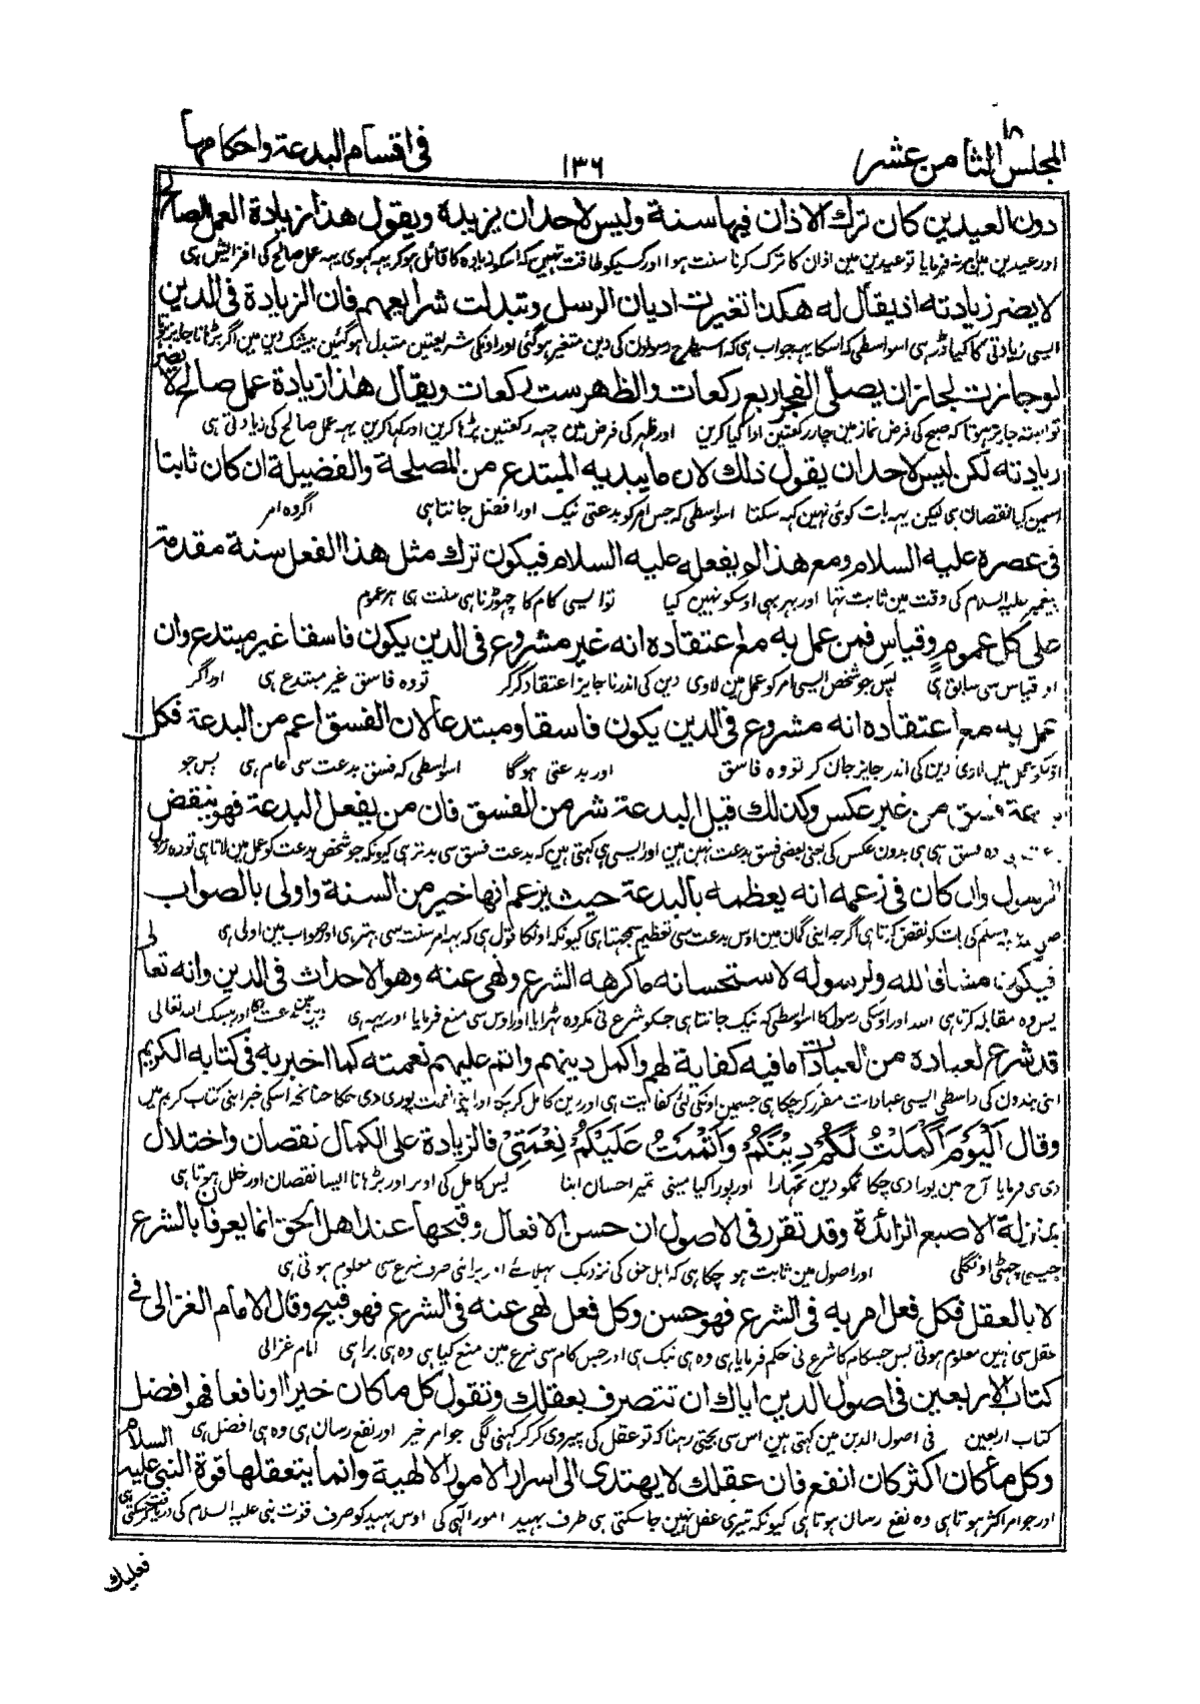 المجلس الثامن عشر
١٣٦
فى اقسام البدعة واحكامها
دون العيدين كان ترك الاذان فيها سنة وليس لاحد ان يزيده ويقول هذا زيادة العمل الصالح
اور عیدین مین نہ فرمایا تو عیدین مین اذان کا ترک کرنا سنت ہوا اور کسیکو طاقت نہین کہ اسکو زیادہ کا قائل ہو کر یہہ کہوی یہہ عمل صالح کی افزایش ہی
لا يضر زيادته اذ يقال له هكذا تغيرت اديان الرسل وتبدلت شرايعهم فان الزيادة فى الدين
ایسی زیادتی کا کیا ڈر ہی اسواسطی کہ اسکا یہہ جواب ہی کہ اسیطرح رسولون کی دین متغیر ہوگئی اور اونکی شریعتین متبدل ہوگئین بیشک دین مین اگر بڑہانا جایز ہوتا
لو جازت لجاز ان يصلى الفجر اربع ركعات والظهر ست ركعات ويقال هذا زيادة عمل صالح لا يضر
تو البتہ جایز ہوتا کہ صبح کی فرض نماز مین چار رکعتین ادا کیا کرین اور ظہر کی فرض مین چہہ رکعتین پڑہا کرین اور کہا کرین یہہ عمل صالح کی زیادتی ہی
زيادته لكن ليس لاحد ان يقول ذلك لان ما يبديه المبتدع من المصلحة والفضيلة ان كان ثابتا
اسمین کیا نقصان ہی لیکن یہہ بات کوئی نہین کہہ سکتا اسواسطی کہ جس امر کو بدعتی نیک اور افضل جانتا ہی اگر وہ امر
فى عصره عليه السلام ومع هذا لم يفعله عليه السلام فيكون ترك مثل هذا الفعل سنة مقدمة
پیغمبر علیہ السلام کی وقت مین ثابت تہا اور پہر بہی اوسکو نہین کیا تو ایسی کام کا چہوڑنا ہی سنت ہی ہر عموم
على كل عموم وقياس فمن عمل به مع اعتقاده انه غير مشروع فى الدين يكون فاسقا غير مبتدع وان
اور قیاس سی سابق ہی پس جو شخص ایسی امر کو عمل مین لاوی دین کی اندر ناجایز اعتقاد کرکر تو وہ فاسق غیر مبتدع ہی اور اگر
عمل به مع اعتقاده انه مشروع فى الدين يكون فاسقا ومبتدعا لان الفسق اعم من البدعة فكل
اوسکو عمل مین لاوی دین کی اندر جایز جان کر تو وہ فاسق اور بدعتی ہوگا اسواسطی کہ فسق بدعت سی عام ہی پس جو
بدعة فسق من غير عكس وكذلك قيل البدعة شر من الفسق فان من يفعل البدعة فهو ينقض
وہ فسق ہی ہی بدون عکس کی یعنی بعضی فسق بدعت نہین ہین اور ایسی ہی کہتی ہین کہ بدعت فسق سی بدتر ہی کیونکہ جو شخص بدعت کو عمل مین لاتا ہی تو وہ رسول
الرسول وان كان فى زعمه انه يعظمه بالبدعة حيث يزعم انها خير من السنة واولى بالصواب
کی بات کو نقض کرتا ہی اگرچہ اپنی گمان مین اوس بدعت سی تعظیم سمجہتا ہی کیونکہ اونکا قول ہی کہ یہہ امر سنت سی بہتر ہی اور صواب مین اولی ہی
فيكون مشاقا لله ولرسوله لاستحسانه ما كرهه الشرع ونهى عنه وهو الاحداث فى الدين وانه تعالى
پس وہ مقابلہ کرتا ہی اللہ اور اوسکی رسول کا اسواسطی کہ نیک جانتا ہی جسکو شرع نی مکروہ ٹہرایا اور اوس سی منع فرمایا اور یہہ ہی
قد شرع لعباده من العبادات ما فيه كفاية لهم واكمل دينهم واتم عليهم نعمته كما اخبر به فى كتابه الكريم
اپنی بندون کی واسطی ایسی عبادات مقرر کرچکا ہی جسمین اونکی لئی کفایت ہی اور دین کامل کرچکا اور اپنی نعمت پوری دی چکا چنانچہ اسکی خبر اپنی کتاب کریم مین
وقال اَلْيَوْمَ اَكْمَلْتُ لَكُمْ دِيْنَكُمْ وَاَتْمَمْتُ عَلَيْكُمْ نِعْمَتِيْ فالزيادة على الكمال نقصان واختلال
دی ہی فرمایا آج مین پورا دی چکا تمکو دین تمہارا اور پورا کیا مینی تمپر احسان اپنا پس کامل کی اوپر اور بڑہانا ایسا نقصان اور خلل ہوتا ہی
بمنزلة الاصبع الزائدة وقد تقرر فى الاصول ان حسن الافعال وقبحها عند اهل الحق انما يعرف بالشرع
جیسی چہٹی اونگلی اور اصول مین ثابت ہو چکا ہی کہ اہل حق کی نزدیک بہلائے اور برائی صرف شرع سی معلوم ہوتی ہی
لا بالعقل فكل فعل امر به فى الشرع فهو حسن وكل فعل نهى عنه فى الشرع فهو قبيح وقال الامام الغزالى فى
عقل سی نہین معلوم ہوتی پس جسکام کا شرع نی حکم فرمایا ہی وہ ہی نیک ہی اور جس کام سی شرع مین منع کیا ہی وہ ہی برا ہی امام غزالی
كتاب الاربعين فى اصول الدين اياك ان تتصرف بعقلك وتقول كل ما كان خيرا او نافعا فهو افضل
کتاب اربعین فی اصول الدین مین کہتی ہین اس سی بچتی رہنا کہ تو عقل کی پیروی کرکر کہنی لگی جو امر خیر اور نفع رسان ہی وہ ہی افضل ہی
وكل ما كان اكثر كان انفع فان عقلك لا يهتدى الى اسرار الامور الالهية وانما يتعقلها قوة النبى عليه السلام
اور جو امر اکثر ہوتا ہی وہ نفع رسان ہوتا ہی کیونکہ تیری عقل نہین جا سکتی ہی طرف بہید امور الٰہی کی اوس بہید کو صرف قوت نبی علیہ السلام کی دریافت کرسکتی ہی
فعليك